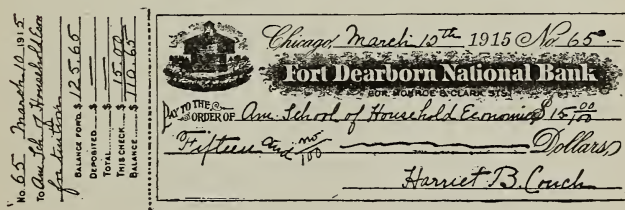 No. 65 March 10 1915
To Am. Sch. of Household Econ
for tuition
BALANCE FOR'D. $ 125.65
DEPOSITED $
TOTAL $
THIS CHECK $ 15.00
BALANCE $ 110.65
Chicago, March 10th 1915 No. 65.-
Fort Dearborn National Bank
COR. MONROE & CLARK STS.
PAY TO THE
ORDER OF Am. School of Household Economics $ 15 00/100
Fifteen and no/100 Dollars
Harriet B. Couch